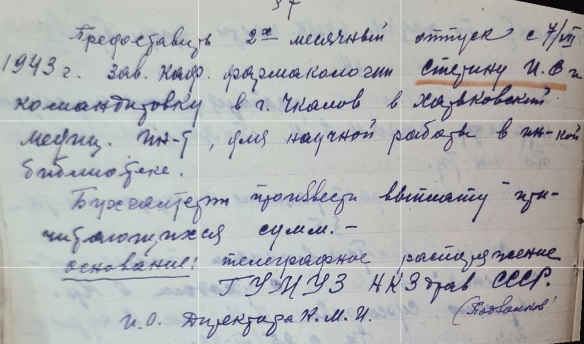 37
Предоставить 2х месячный отпуск с 7/VII
1943 г. Зав. каф. фармакологии И.О. и
командировку в г. Чкалов в Харьковский
медиц. ин-т, для научной работы в ин-кой
библиотеке.
Бухгалтерии произвести выплату при-
читающихся сумм. —
основание: телеграфное распоряжение
ГУМУЗ НКЗдрав СССР.
И.О. Директора К.М.И.